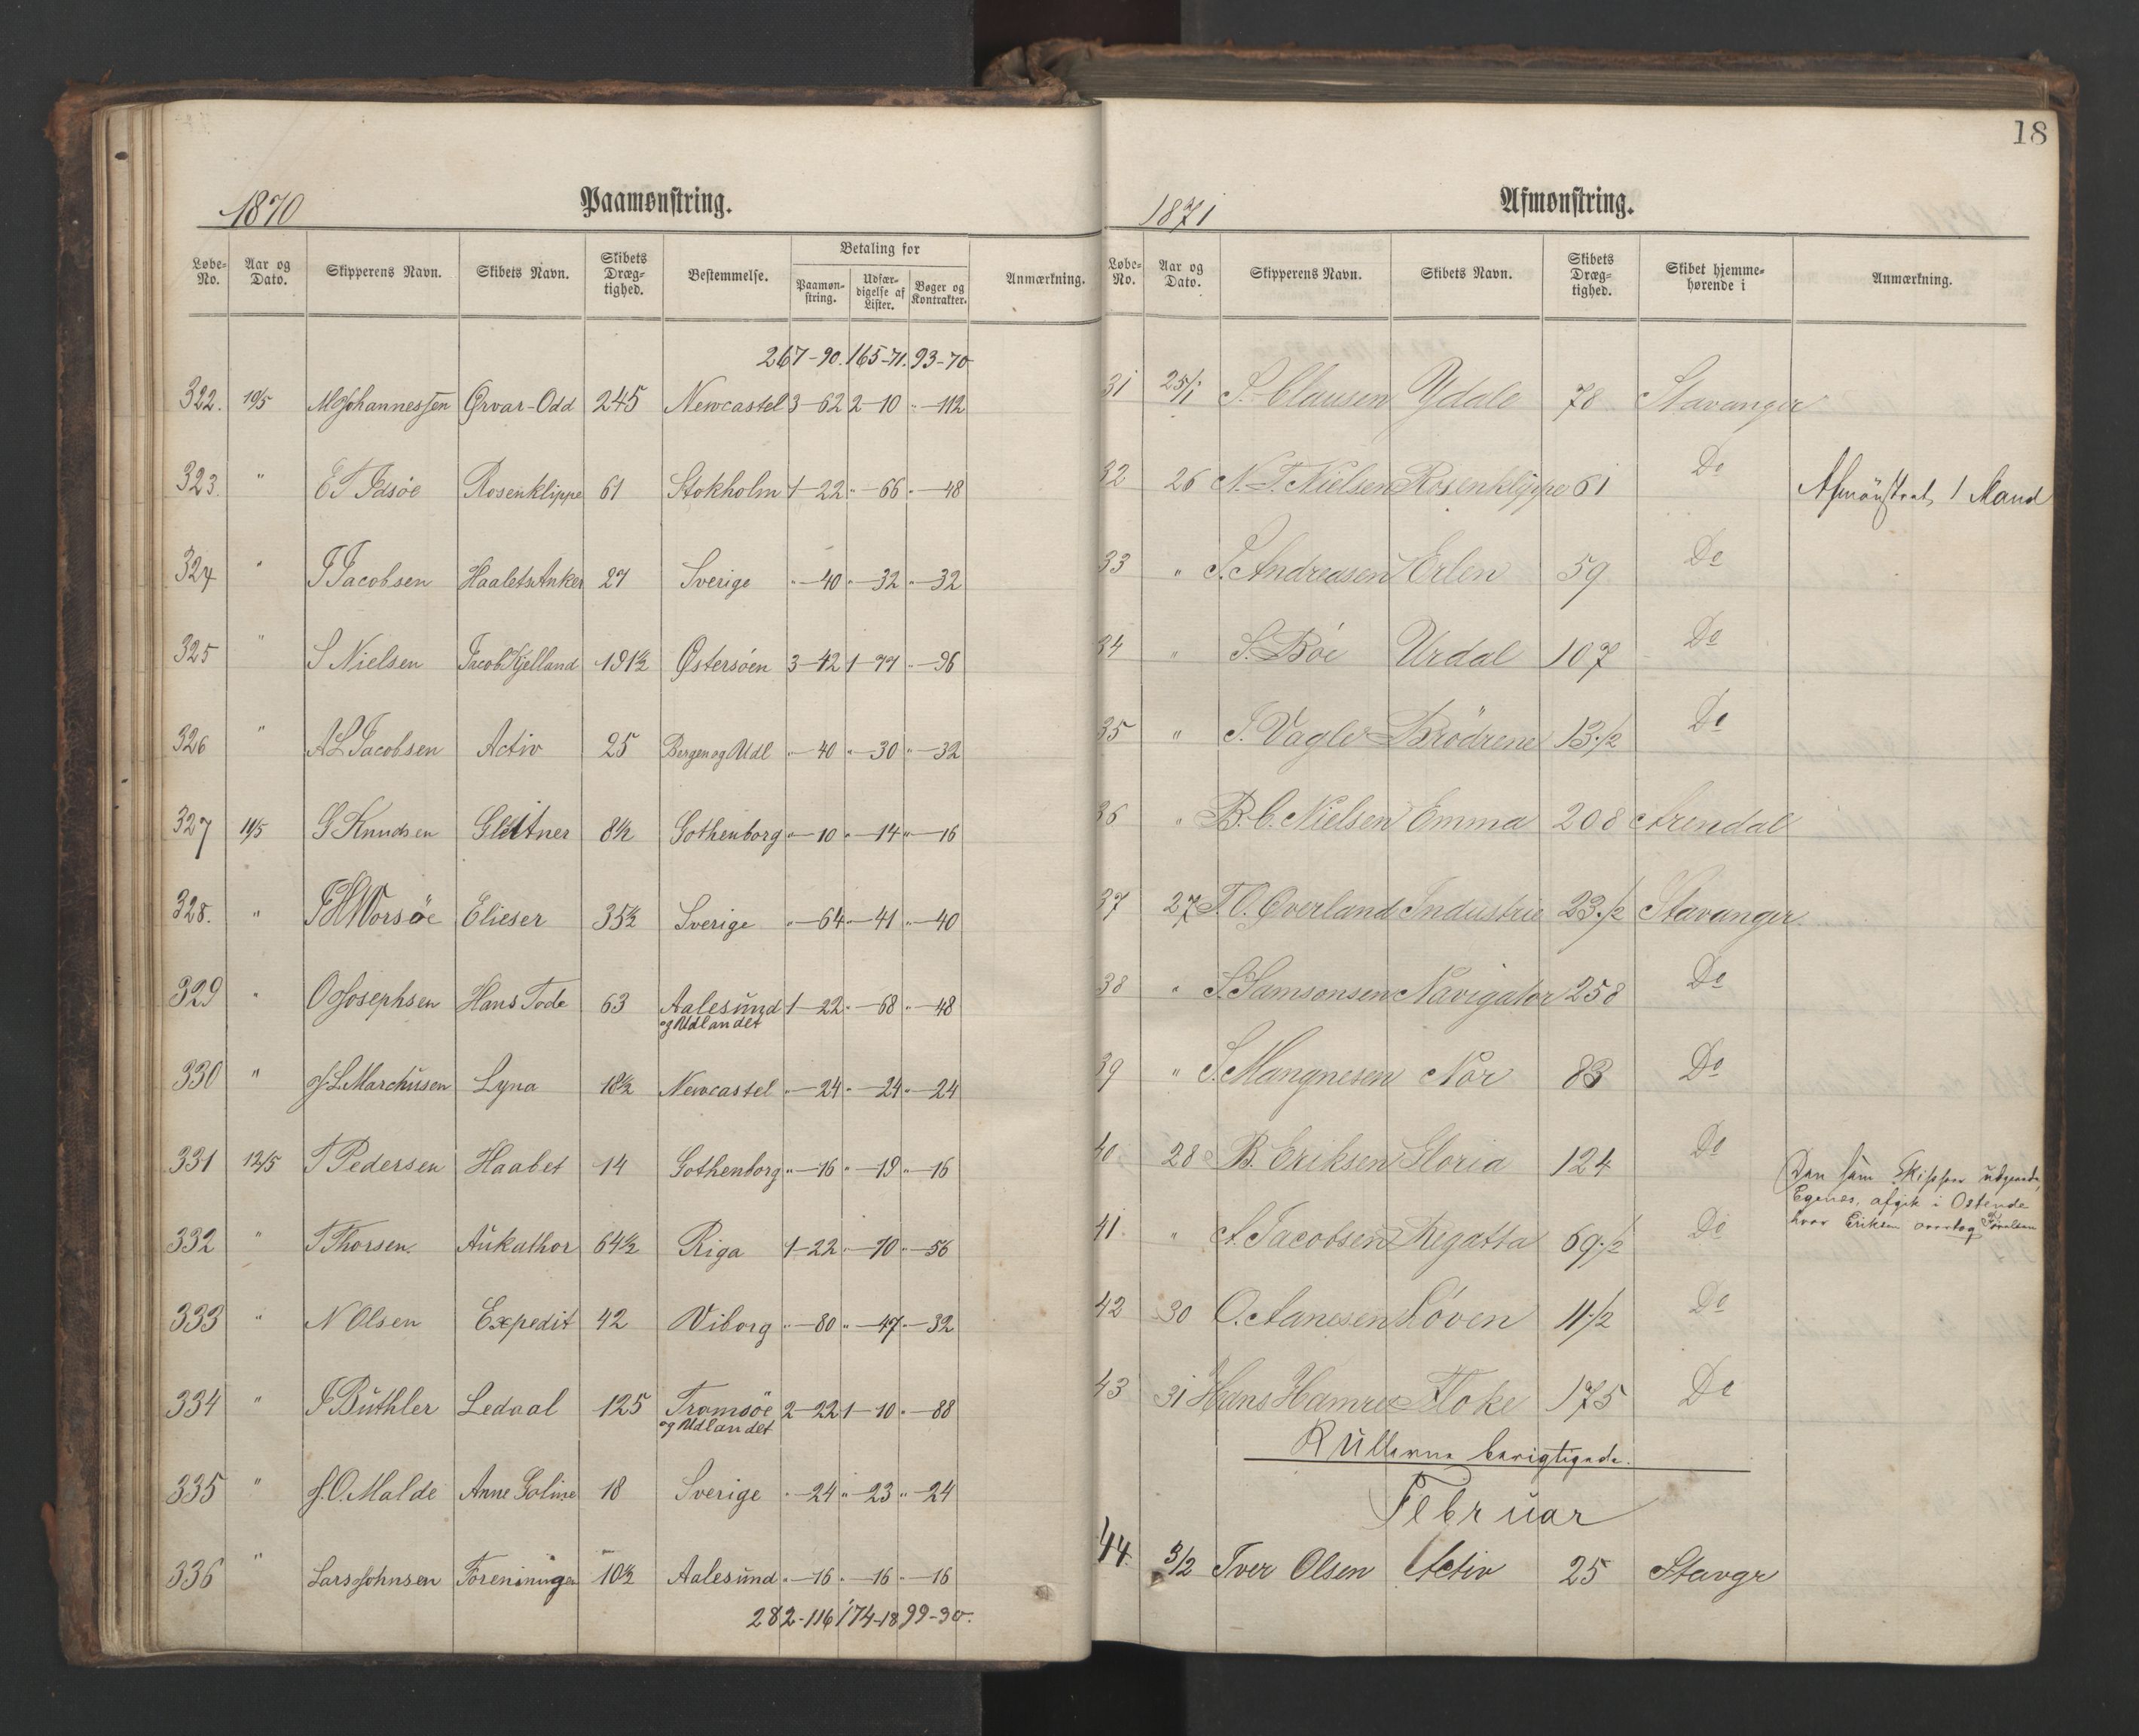 1870 Paamønstring.
Løbe-No. Aar og Dato. Skipperens Navn. Skibets Navn. Skibets Dræg-tighed. Bestemmelse. Betaling for Paamøn-string. Udfær-digelse af Lister. Bøger og Kontrakter. Anmærkning.
267-90. 165-71. 93-70
322. 10/5 M Johannessen Ørvar-Odd 245 Newcastel 3-62 2-10 "-112
323. " E T Idsøe Rosenklippe 61 Stokholm 1-22 "-66 "-48
324 " J Jacobsen Haabets Anker 27 Sverige "-40 "-32 "-32
325 " S Nielsen Jacob Kjelland 191½ Østersöen 3-42 1-77 "-96
326 " A L Jacobsen Activ 25 Bergen og Udl "-40 "-30 "-32
327 11/5 G Knudsen Gleitner 8½ Gothenborg "-10 "-14 "-16
328. " J H Worsöe Elieser 35½ Sverige "-64 "-41 "-40
329 " O Josephsen Hans Tode 63 Aalesund og Udlandet 1-22 "-68 "-48
330 " J. L. Marchusen Lyna 18½ Newcastel "-24 "-24 "-24
331 12/5 T Pedersen Haabet 14 Gothenborg "-16 "-19 "-16
332 " T Thorsen. Aukathor 64½ Riga 1-22 "-70 "-56
333 " N Olsen Expedit 42 Viborg "-80 "-47 "-32
334 " J Büthler Ledaal 125 Tromsöe og Udlandet 2-22 1-10 "-88
335 " J. O. Malde Anne Goline 18 Sverige "-24 "-23 "-24
336 " Lars Johnsen Foreningen 10½ Aalesund "-16 "-16 "-16
282-116 174-18 99-30.
18
1871 Afmønstring.
Løbe-No. Aar og Dato. Skipperens Navn. Skibets Navn. Skibets Dræg-tighed. Skibet hjemme-hørende i Anmærkning.
31 25/1 S. Clausen Ydale 78 Stavanger
32 26 N. T. Nielsen Rosenklippe 61 Do Afmönstret 1 Mand
33 " S. Andreasen Erlen 59 Do
34 " S. Böe Urdal 107 Do
35 " J. Vagle Brödrene 13½ Do
36 " B. C. Nielsen Emma 208 Arendal
37 27 T. O. Overland Industrie 23½ Stavanger
38 " S. Samsonsen Navigator 258 Do
39 " S. Mangnesen Nor 83 Do
40 28 B. Eriksen Gloria 124 Do Den som Skipper udgaaede, Egenes, afgik i Ostende hvor Eriksen overtog Förelsen
41. " A. Jacobsen Regatta 69½ Do
42 30 O. Aanesen Löven 11½ Do
43 31 Hans Hamre Floke 175 Do
Rullerne berigtigede.
Februar
44. 3/2 Iver Olsen Activ 25 Stavgr